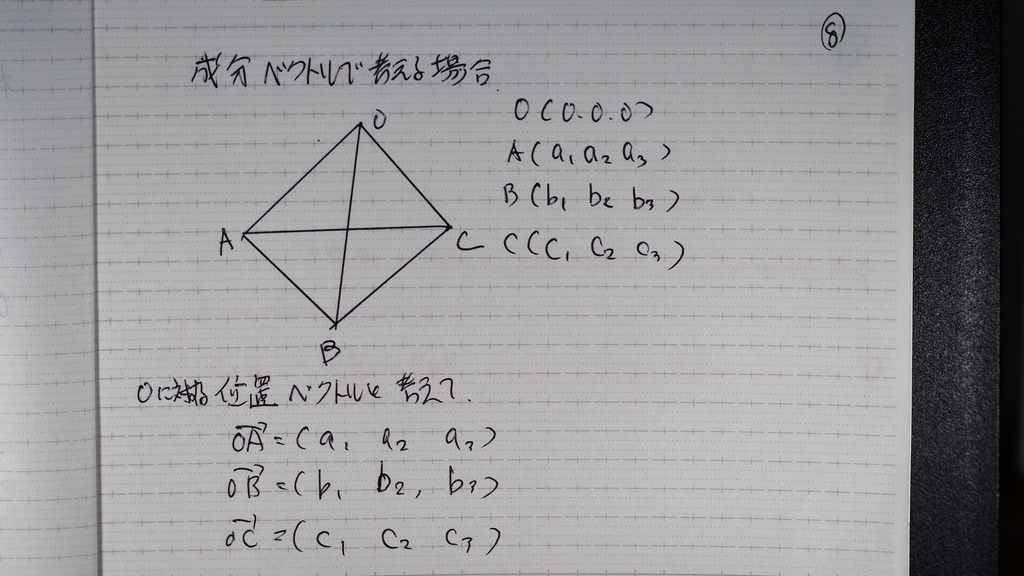 ⑧
成分ベクトルで考える場合
O
O(0.0.0)
A(a₁ a₂ a₃)
B(b₁ b₂ b₃)
A
C
C(C₁ C₂ C₃)
B
Oに対する位置ベクトルを考えて.
→OA=(a₁ a₂ a₃)
→OB=(b₁ b₂, b₃)
→OC=(C₁ C₂ C₃)